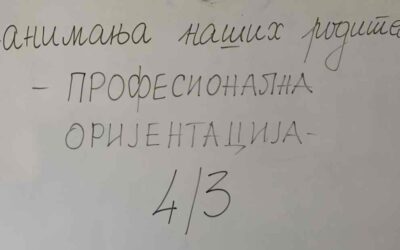 анимања наших родите
- ПРОФЕСИОНАЛНА
ОРИЈЕНТАЦИЈА-
4/3